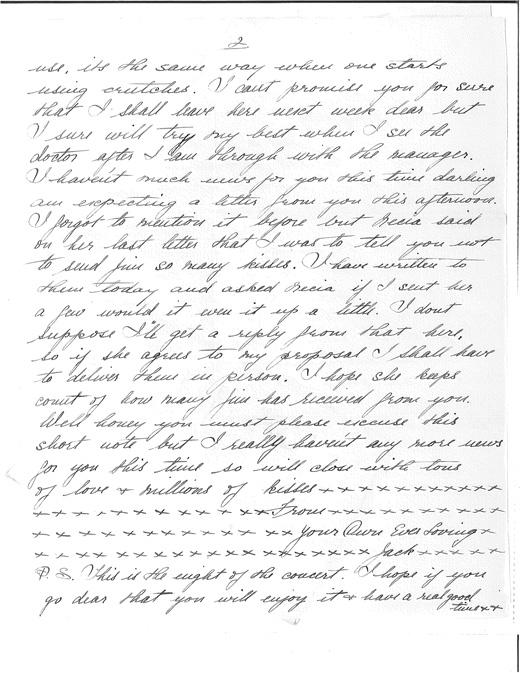 2
use, its the same way when one starts
using crutches. I cant promise you for sure
that I shall leave here next week dear but
I sure will try my best when I see the
doctor after I am through with the manager.
I havent much news for you this time darling
am expecting a letter from you this afternoon.
I forgot to mention it before but Decia said
on her last letter that I was to tell you not
to send Jim so many kisses. I have written to
them today and asked Decia if I sent her
a few would it even it up a little. I dont
suppose I'll get a reply from that here,
so if she agrees to my proposal I shall have
to deliver them in person. I hope she keeps
count of how many Jim has received from you.
Well honey you must please excuse this
short note but I really havent any more news
for you this time so will close with tons
of love + millions of kisses x x x x x x x x x x x
x x x x x x x x x x x From x x x x x x x x x x
x x x x x x x x x x x x x Your Own Ever Loving x
x x x x x x x x x x x x x x x x x x Jack x x x x x
P.S. This is the night of the concert. I hope if you
go dear that you will enjoy it + have a real good
time x x